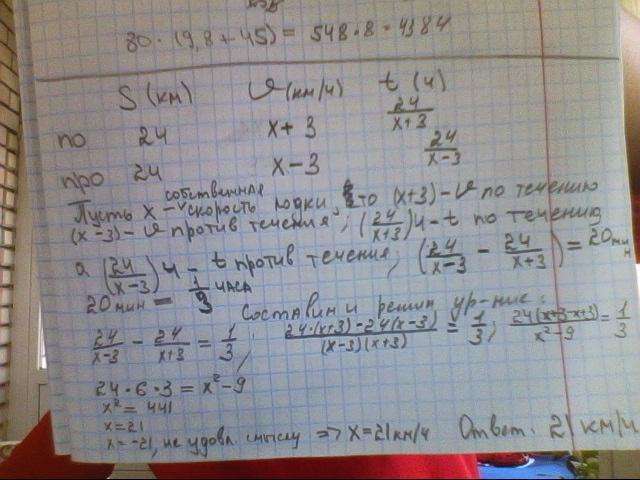 80 · (9,8 + 45) = 548 · 8 = 4384
S (км) V (км/ч) t (ч)
по 24 x+3 24/(x+3)
про 24 x-3 24/(x-3)
Пусть x - собственная скорость лодки, то (x+3) - V по течению
(x-3) - V против течения; (24/(x+3)) ч - t по течению,
а (24/(x-3)) ч - t против течения; (24/(x-3) - 24/(x+3)) = 20 мин
20 мин = 1/3 часа
Составим и решим ур-ние:
24/(x-3) - 24/(x+3) = 1/3; (24·(x+3)-24(x-3))/((x-3)(x+3)) = 1/3; 24(x+3-x+3)/(x²-9) = 1/3
24·6·3 = x²-9
x² = 441
x = 21
x = -21, не удовл. смыслу => x = 21 км/ч Ответ. 21 км/ч